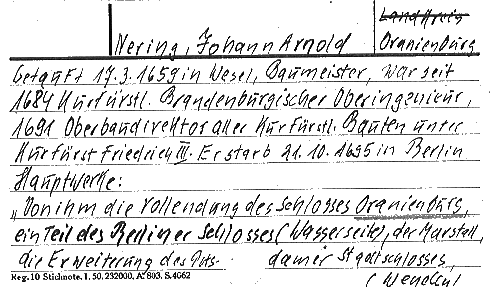 Landkreis
Nering, Johann Arnold
Oranienburg
getauft 17.3.1659 in Wesel, Baumeister, war seit
1684 Kurfürstl. Brandenburgischer Oberingenieur,
1691 Oberbaudirektor aller Kurfürstl. Bauten unter
Kurfürst Friedrich III. Er starb 21.10.1695 in Berlin
Hauptwerke:
„Von ihm die Vollendung des Schlosses Oranienburg,
ein Teil des Berliner Schlosses (Wasserseite), der Marstall,
die Erweiterung des Pots- damer Stadtschlosses,
Reg. 10 Stichnote. I. 50. 232000. A 803. S.4062